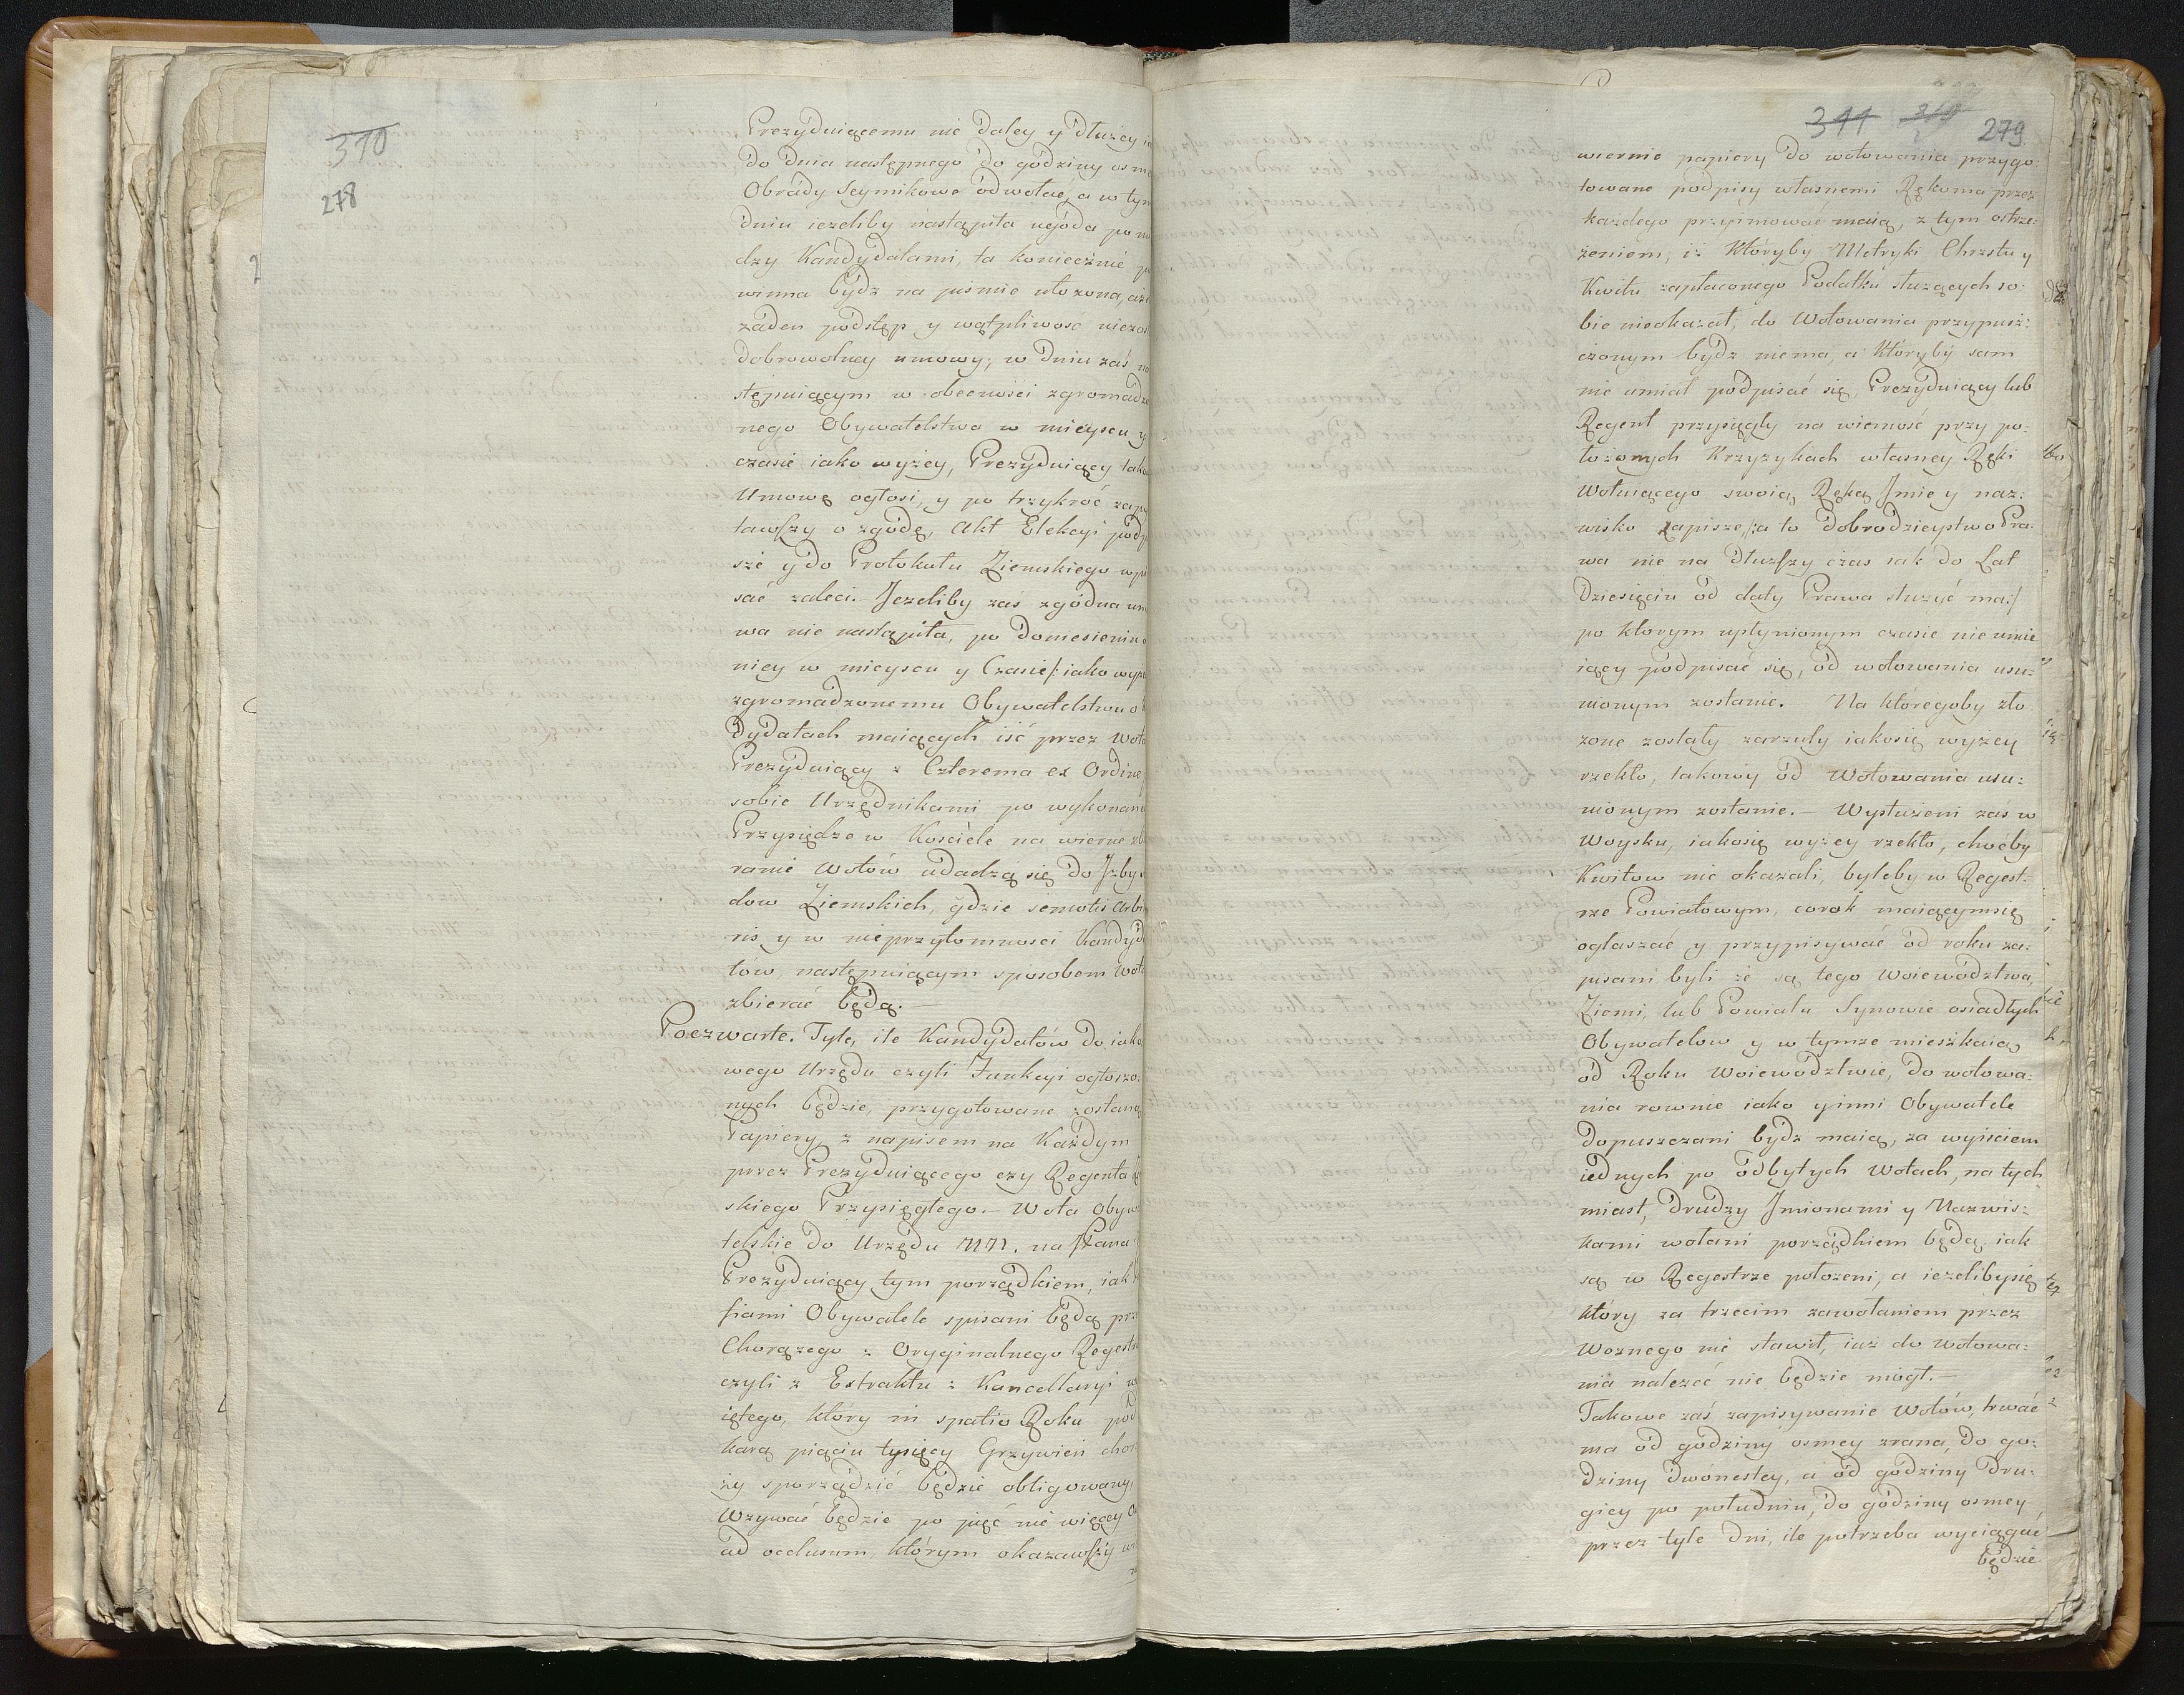 310
278
Prezyduiącemu nie daley y dłużey
do dnia następnego do godziny osme
Obrady Seymikowe odwołać, a w tym
dniu iezeliby nastąpiła ugoda po
dzy Kandydatami, ta koniecznie
winna bydz na pismie ułozona, aże
żaden podstęp y wątpliwosc
dobrowolney umowy; w dniu zaś na
stępuiącym w obecnosci zgromadzo
nego Obywatelstwa w mieyscu y
czasie iako wyżey, Prezyduiący tako
Umowę ogłosi, y po trzykroć zapy
tawszy o zgodę, Akt Elekcyi podp
sze y do Protokułu Ziemskiego wpi
sać zaleci. Jezeliby zas zgodna um
wa nie nastąpiła, po doniesieniu o
niey w mieyscu y Czasie /: iako wyż
zgromadzonemu Obywatelstwu o
dydatach maiących iść przez Wota
Prezyduiący z Czterema ex Ordine
sobie Urzędnikami po wykonane
Przysiędze w Kosciele na wierne zb
ranie Wotów udadzą się do Jzby
dow Ziemskich, gdzie semotis Arbi
ris y w nieprzytomnosci Kandyda
tow następuiącym sposobem Wota
zbierać będą. —
Poczwarte. Tyle, ile Kandydatów do iako
wego Urzędu czyli Funkcyi ogłoszo-
nych będzie, przygotowane zostaną
Papiery, z napisem na Każdym
przez Prezyduiącego czy Regenta
skiego Przysięgłego. — Wota Obywa
telskie do Urzędu NN. na JPana
Prezyduiący tym porządkiem, iak
fiami Obywatele spisani będą prz
Chorążego z Oryginalnego Regestru
czyli z Extraktu z Kancellaryi w
iętego, który in spatio Roku pod
karą pięciu tysięcy Grzywien chorą
ży sporządzić będzie obligowany,
Wzywać będzie po pięć nie więcey
ad occlusum, którym okazawszy
311 310 279
wiernie papiery do wotowania przygo-
towane podpisy własnemi Rękoma przez
każdego przyimować maią, z tym ostrze-
żeniem, iż Któryby Metryki Chrztu y
Kwitu zapłaconego Podatku służących so-
bie nieokazał, do Wotowania przypusz-
czonym bydz niema, a Któryby sam
nie umiał podpisać się, Prezyduiący lub
Regent przysięgły na wierność przy po-
łożonych Krzyzykach własney Ręki
Wotuiącego swoią Ręką Jmie y naz-
wisko zapisze /: a to dobrodzieystwo Pra-
wa nie na dłuższy czas iak do Lat
dziesięciu od daty Prawa służyć ma :/
po ktorym upłynionym czasie nie umie
iący podpisać się, od wotowania usu-
nionym zostanie. — Na któregoby zło
zone zostały zarzuty iakosię wyzey
rzekło, takowy od Wotowania usu-
nionym zostanie. — Wysłużeni zas w
Woysku, iakosię wyżey rzekło, choćby
Kwitow nie okazali, byleby w Regest-
rze Powiatowym, corok maiącymsię
ogłaszać y przypisywać od roku za-
pisani byli że są tego Woiewództwa,
Ziemi, lub Powiatu Synowie osiadłych
Obywatelow y w tymze mieszkaią
od Roku Woiewodztwie, do wotowa-
nia rownie iako y inni Obywatele
dopuszczani bydz maią, za wyisciem
iednych po odbytych Wotach, na tych
miast, drudzy Jmionami y Nazwis-
kami wołani porządkiem będą, iak
są w Regestrze położeni, a iezelibysię
który za trzecim zawołaniem przez
Woznego nie stawił, iuż do wotowa-
nia należeć nie będzie mógł. —
Takowe zaś zapisywanie Wotów, trwać
ma od godziny osmey zrana, do go-
dziny dwónestey, a od godziny dru-
giey po południu, do godziny osmey
przez tyle dni, ile potrzeba wyciągać
będzie